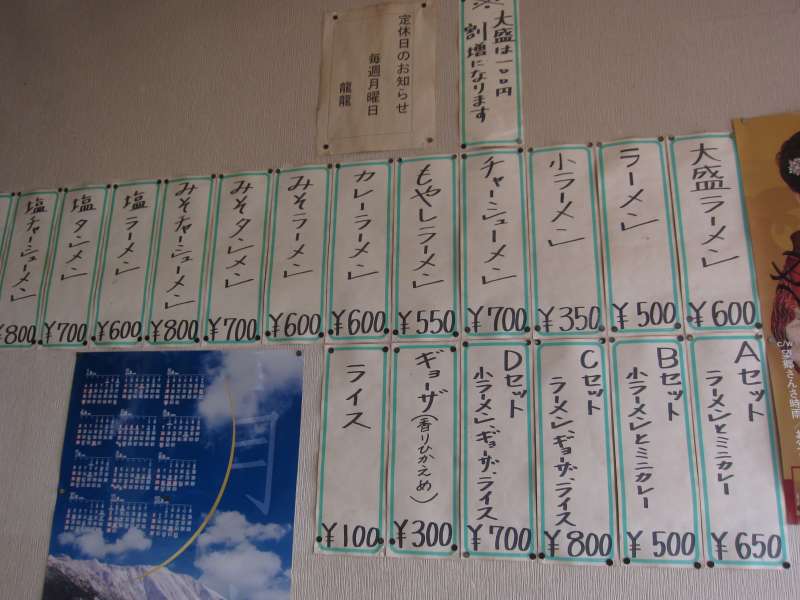 ※大盛は一〇〇円
割増になります
定休日のお知らせ
毎週月曜日
龍龍
大盛ラーメン
¥600
ラーメン
¥500
小ラーメン
¥350
チャーシューメン
¥700
もやしラーメン
¥550
カレーラーメン
¥600
みそラーメン
¥600
みそタンメン
¥700
みそチャーシューメン
¥800
塩ラーメン
¥600
塩タンメン
¥700
塩チャーシューメン
¥800
Aセット
ラーメンとミニカレー
¥650
Bセット
小ラーメンとミニカレー
¥500
Cセット
ラーメン、ギョーザ、ライス
¥800
Dセット
小ラーメン、ギョーザ、ライス
¥700
ギョーザ(香りひかえめ)
¥300
ライス
¥100
月
c/w望郷さんさ時雨